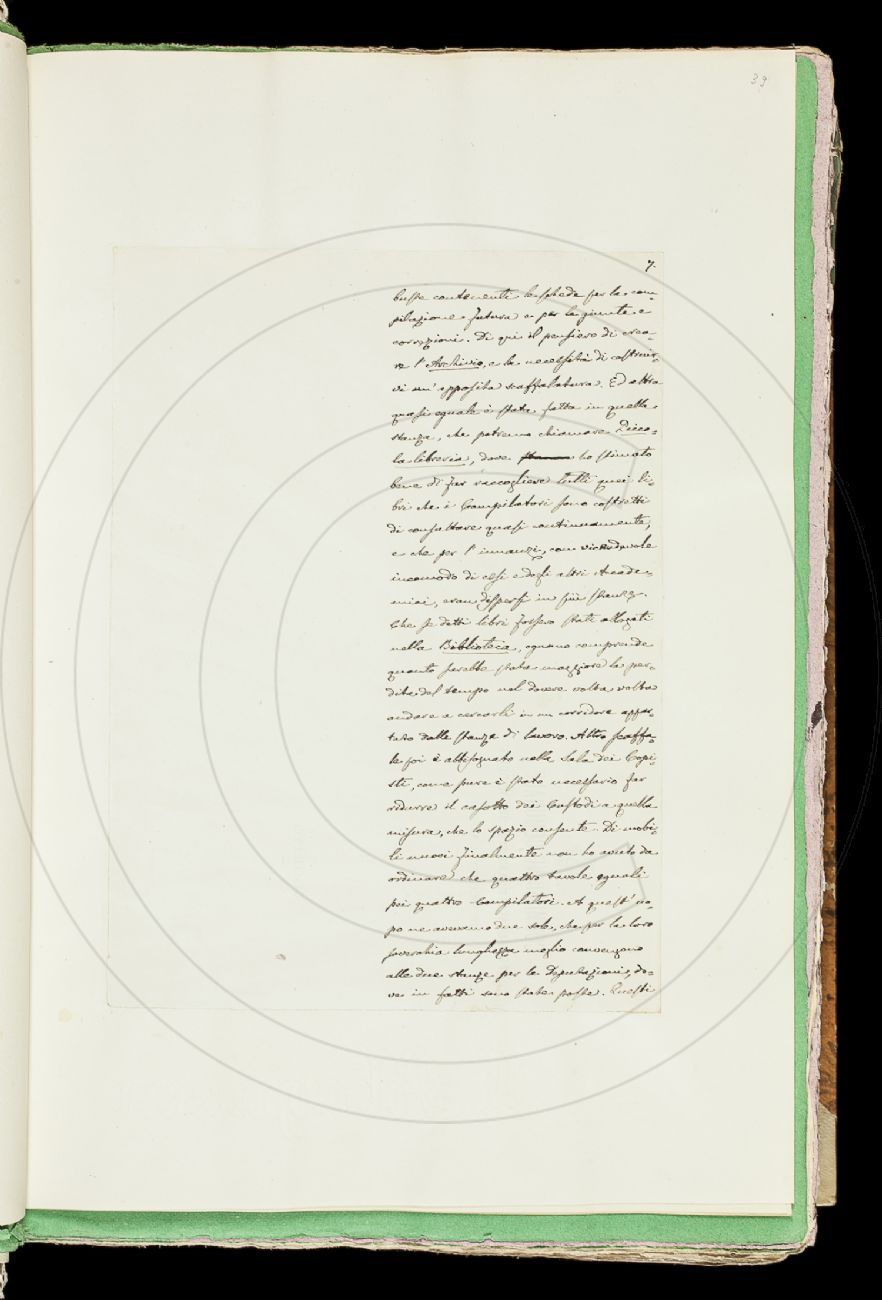 39
7.
busse contenenti le schede per la com-
pilazione futura o per la giunte e
correzioni. Di qui il pensiero di crea-
re l'Archivio, e la necessità di costruir-
vi un'apposita scaffalatura. Ed altra
quasi eguale è stata fatta in quella
stanza, che potremo chiamare Picco-
la libreria, dove ho stimato
bene di far raccogliere tutti quei li-
bri che i Compilatori sono costretti
di consultare quasi continuamente,
e che per l'innanzi, con vicendevole
incomodo di essi e degli altri Accade-
mici, eran dispersi in più stanze.
Che se detti libri fossero stati allogati
nella Biblioteca, ognuno comprende
quanto sarebbe stata maggiore la per-
dita del tempo nel dovere volta volta
andare a cercarli in un corridore appar-
tato dalle stanze di lavoro. Altro scaffa-
le poi è abbisognato nella Sala dei Copi-
sti, come pure è stato necessario far
ridurre il casotto dei Custodi a quella
misura, che lo spazio consente. Di mobi-
li nuovi finalmente non ho avuto da
ordinare che quattro tavole eguali
pei quattro Compilatori. A quest'uo-
po ne avevamo due sole, che per la loro
soverchia lunghezza meglio convengono
alle due stanze per le Deputazioni, do-
ve in fatti sono state poste. Questi